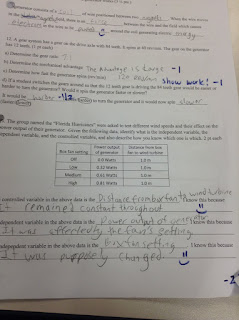 generator consists of a
of wire positioned between two magnets. When the wire
electrons in the wire to be pushed around the coil generating electric energy
12. A gear system has a gear on the drive axle with 84 teeth. It spins at 60 rev/min. The gear on the generator
has 12 teeth. (1 pt each)
a) Determine the gear ratio. 7:1
b) Determine the mechanical advantage. The Advantage is -1
c) Determine how fast the generator spins (rev/min) show work! -1
d) If a student switches the gears around so that the 12 tooth gear is driving the 84 tooth gear would be easier or
harder to turn the generator? Would it spin the generator faster or slower?
It would be -1/2 to turn the generator and it would now spin slower
The group named the "Florida Hurricanes" were asked to test different wind speeds and their effect on the
power output of their generator. Given the following data, identify what is the independent variable, the
dependent variable, and the controlled variable, and also describe how you know which one is which. 2 pt each
Box fan setting Power output of generator Distance from box fan to wind turbine
Off 0.0 Watts 1.0 m
Low 0.32 Watts 1.0 m
Medium 0.61 Watts 1.0 m
High 0.81 Watts 1.0 m
controlled variable in the above data is the Distance from box fan to wind turbine I know this because
it remained constant throughout
dependent variable in the above data is the Power output of generator I know this because
It was affected by the fan's setting
independent variable in the above data is the box fan setting I know this because
It was purposely changed
-2